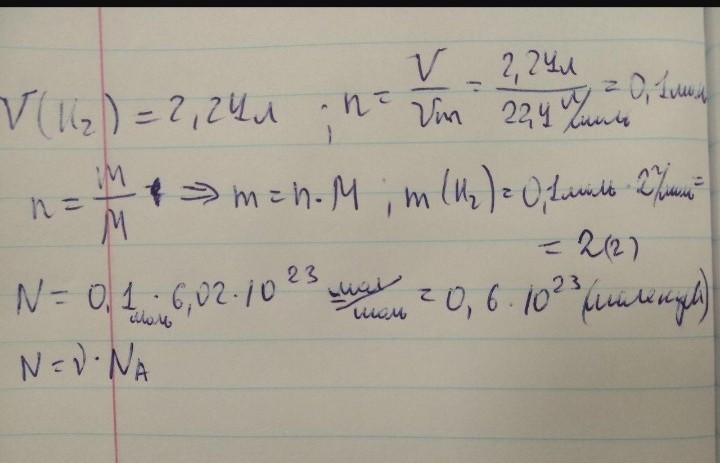 V(H₂) = 2,24л ; n = V/Vm = 2,24л/22,4 л/моль = 0,1моль
n = m/M ⇒ m = n·M ; m(H₂) = 0,1моль · 2г/моль =
= 2(г)
N = 0,1моль · 6,02·10²³ мол/моль = 0,6·10²³ (молекул)
N = ν·Nᴀ